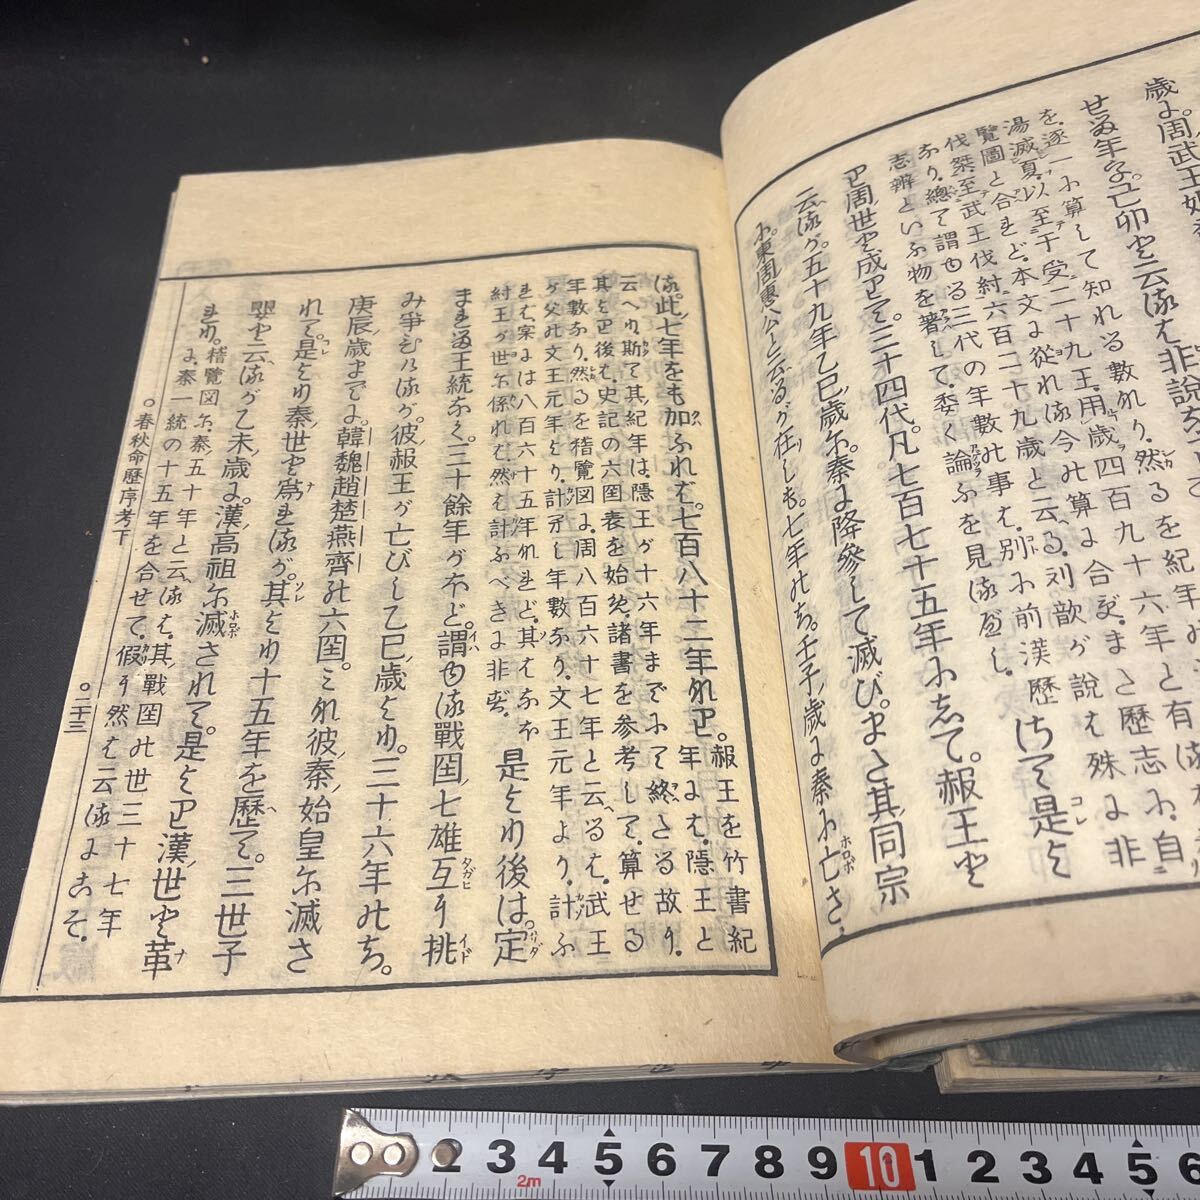 歳に。周武王
せる年子。己卯と云るは非説な
を逐一に算して知れる数なり。然るを紀年
湯滅夏以至于受二十九王用歳四百九十六年と有
覽圖と合ず。本文に從れる今の算に合ず。また歷志に、自
伐桀至武王伐紂六百二十九歳と云る。刘歆が説は殊に非
なり。總て謂ゆる三代の年數の事は、別に前漢歷
志辨といふ物を著して、委く論ふを見るべし。
周世と成りて。三十四代。凡七百七十五年にして。赧王と
云るが。五十九年乙巳歳に。秦に降參して滅び。また其同宗
に。東周惠公と云るが在しも。七年のち。壬子歳に秦に亡さ
る。此七年をも加ふれば。七百八十二年なり。
赧王を竹書紀年には。隱王と
云へり。斯て其紀年は。隱王が十六年までにて終たる故り。
其より後は。史記の六国表を始め。諸書を參考して。算せる
年數なり。然るを稽覽図に。周八百六十七年と云るは。武王
が父の文王元年より。計ふ
れば。実には八百六十五年なれど。其はなほ
紂王が世に係れば。然は計ふべきに非ず。
是より後は。定
まれる王統なく。三十餘年がほど。謂ゆる戰国七雄互に挑
み爭ひつるが。彼赧王が亡びし乙巳歳より。三十六年のち。
庚辰歳までに。韓魏趙楚燕齊の六国。みな彼秦始皇に滅さ
れて。是より秦世と爲れるが。其より十五年を歷て。三世子
嬰と云るが乙未歳に。漢高祖に滅されて。是より漢世と革
れり。
稽覽図に。秦五十年と云るは。其戰国の世三十七年
に。秦一統の十五年を合せて。假に然は云るにこそ。
○春秋命歷序考下
○二十三
2 3 4 5 6 7 8 9 10 1 2 3 4 5 6
2m